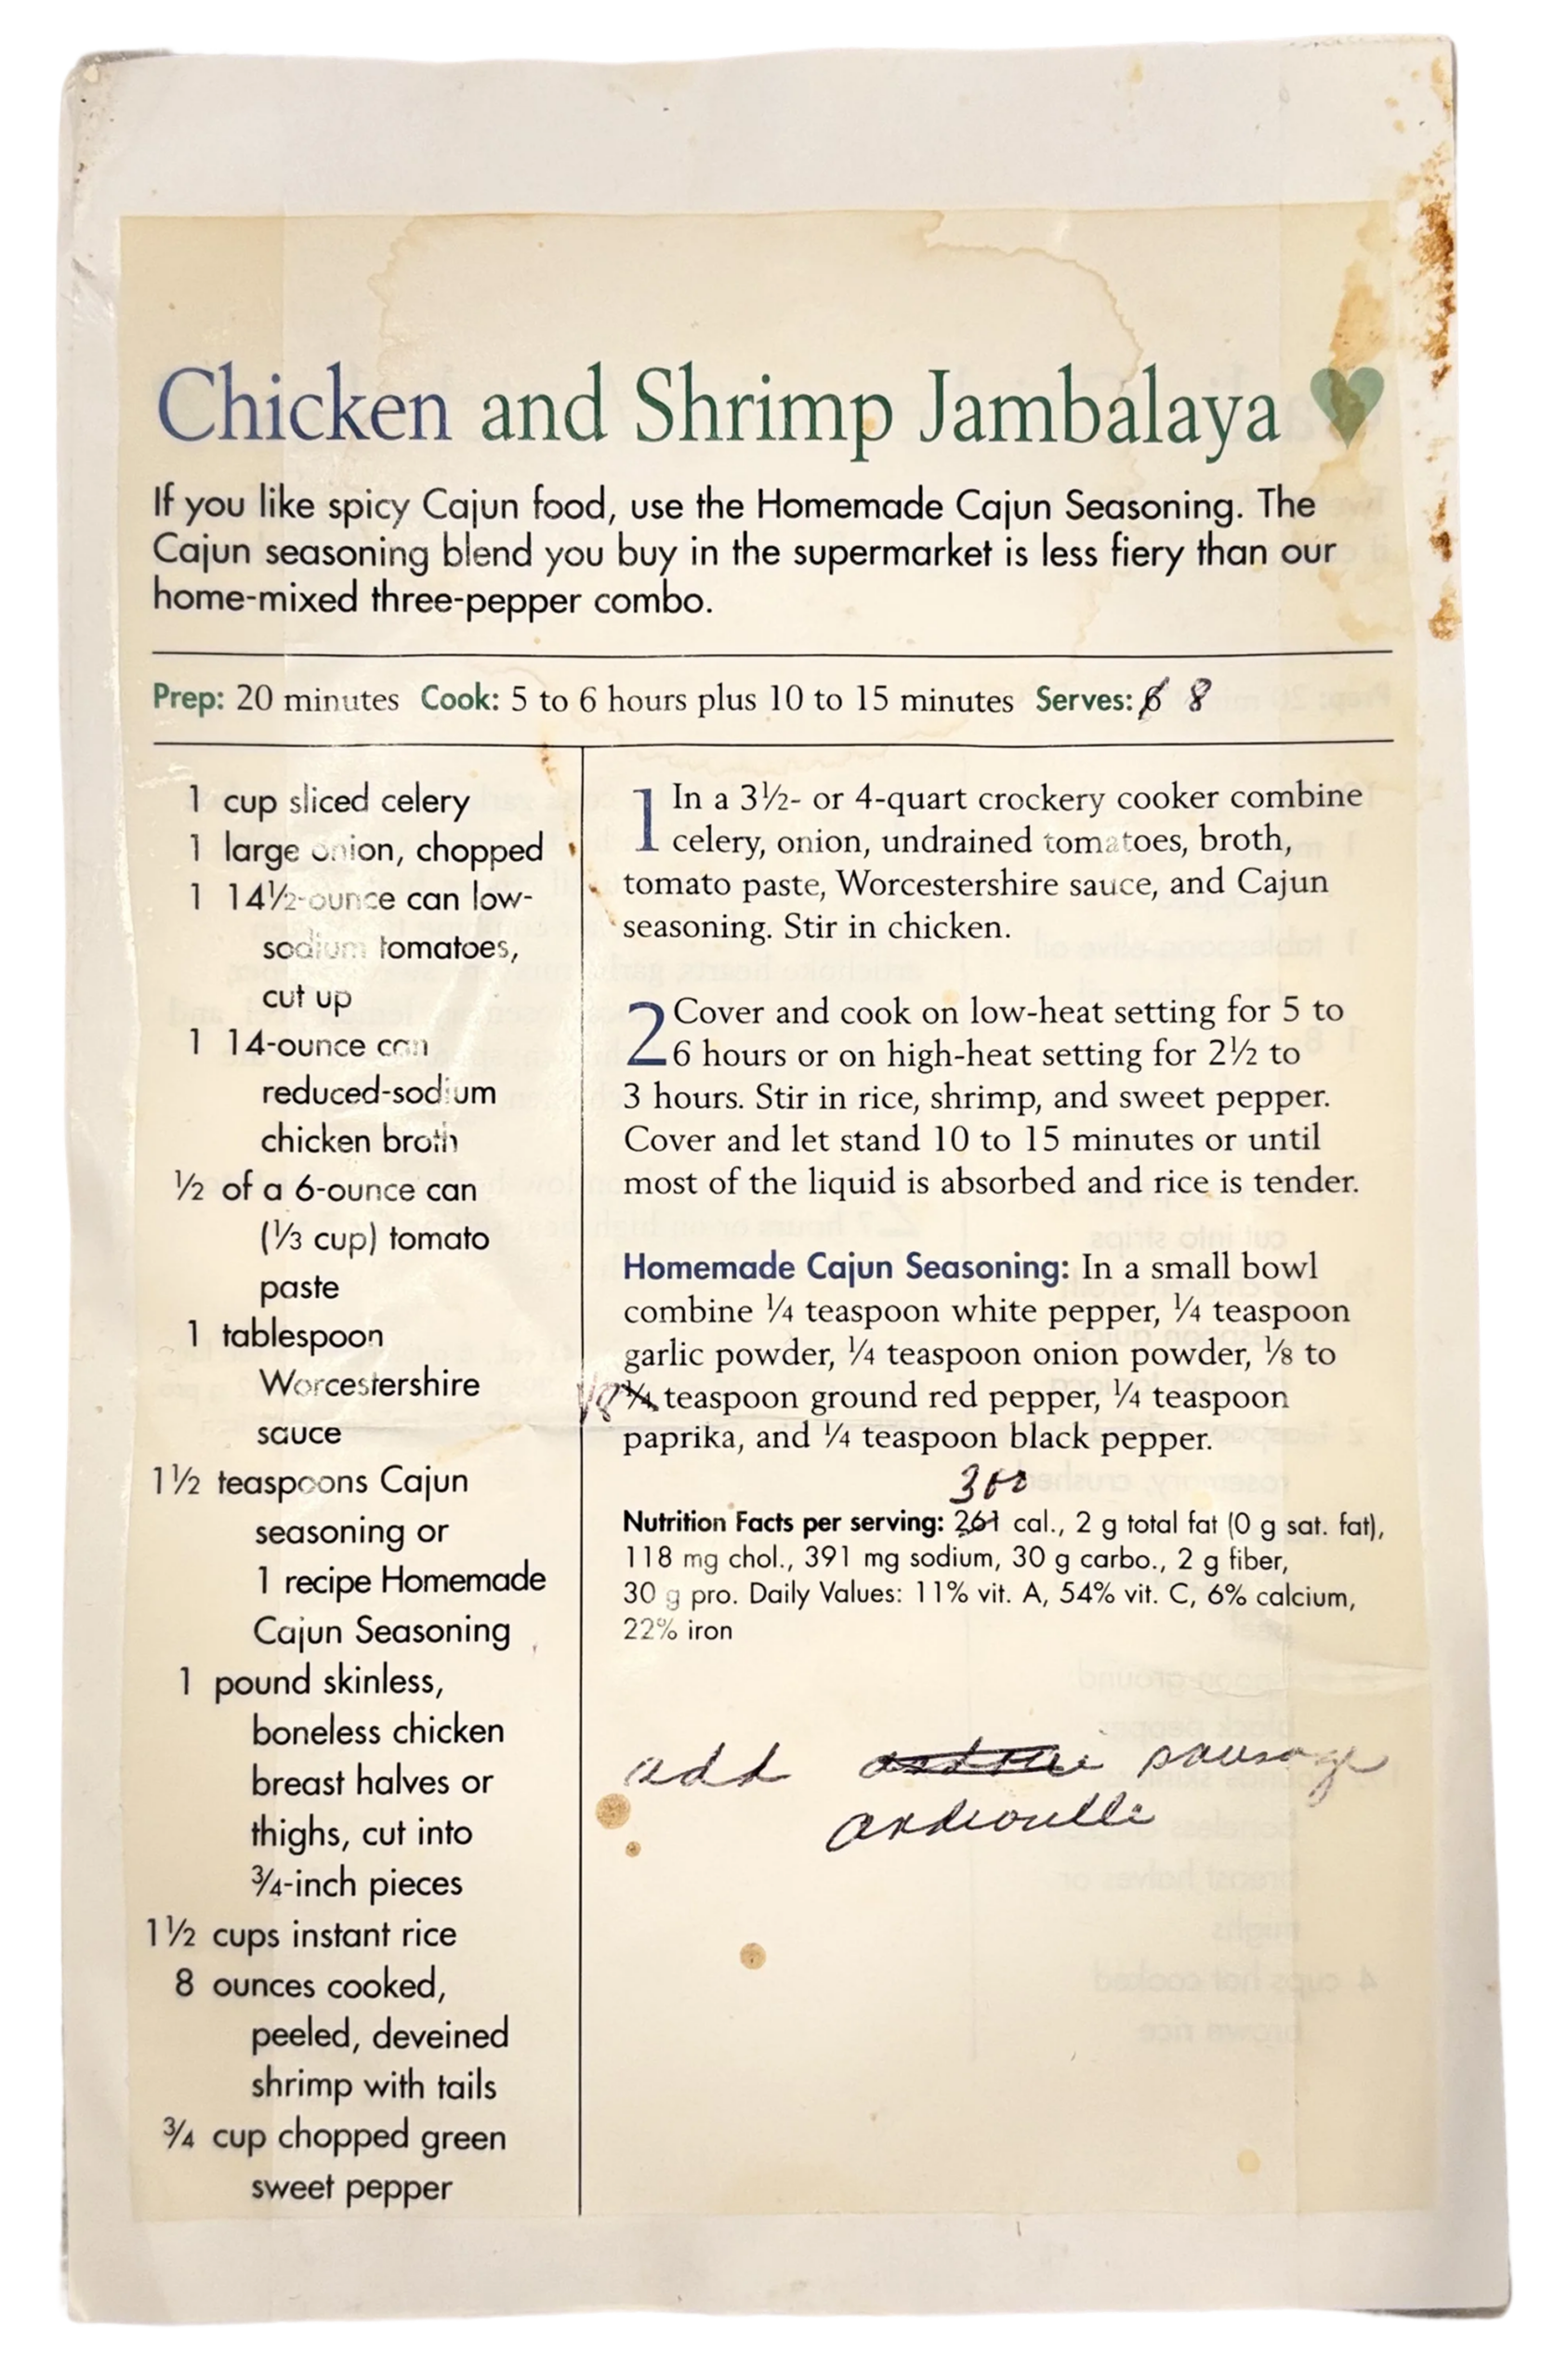 Chicken and Shrimp Jambalaya
If you like spicy Cajun food, use the Homemade Cajun Seasoning. The
Cajun seasoning blend you buy in the supermarket is less fiery than our
home-mixed three-pepper combo.
Prep: 20 minutes Cook: 5 to 6 hours plus 10 to 15 minutes Serves: 6 8
1 cup sliced celery
1 large onion, chopped
1 14½-ounce can low-
sodium tomatoes,
cut up
1 14-ounce can
reduced-sodium
chicken broth
½ of a 6-ounce can
(⅓ cup) tomato
paste
1 tablespoon
Worcestershire
sauce
1½ teaspoons Cajun
seasoning or
1 recipe Homemade
Cajun Seasoning
1 pound skinless,
boneless chicken
breast halves or
thighs, cut into
¾-inch pieces
1½ cups instant rice
8 ounces cooked,
peeled, deveined
shrimp with tails
¾ cup chopped green
sweet pepper
1 In a 3½- or 4-quart crockery cooker combine
celery, onion, undrained tomatoes, broth,
tomato paste, Worcestershire sauce, and Cajun
seasoning. Stir in chicken.
2 Cover and cook on low-heat setting for 5 to
6 hours or on high-heat setting for 2½ to
3 hours. Stir in rice, shrimp, and sweet pepper.
Cover and let stand 10 to 15 minutes or until
most of the liquid is absorbed and rice is tender.
Homemade Cajun Seasoning: In a small bowl
combine ¼ teaspoon white pepper, ¼ teaspoon
garlic powder, ¼ teaspoon onion powder, ⅛ to
1/8 ¼ teaspoon ground red pepper, ¼ teaspoon
paprika, and ¼ teaspoon black pepper.
300
Nutrition Facts per serving: 261 cal., 2 g total fat (0 g sat. fat),
118 mg chol., 391 mg sodium, 30 g carbo., 2 g fiber,
30 g pro. Daily Values: 11% vit. A, 54% vit. C, 6% calcium,
22% iron
add sausage
andioulle